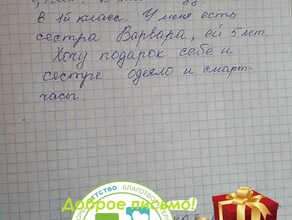 в 1й класс. У меня есть
сестра Варвара, ей 5 лет
Хочу подарок себе и
сестре одеяло и смарт-
часы
Доброе письмо!